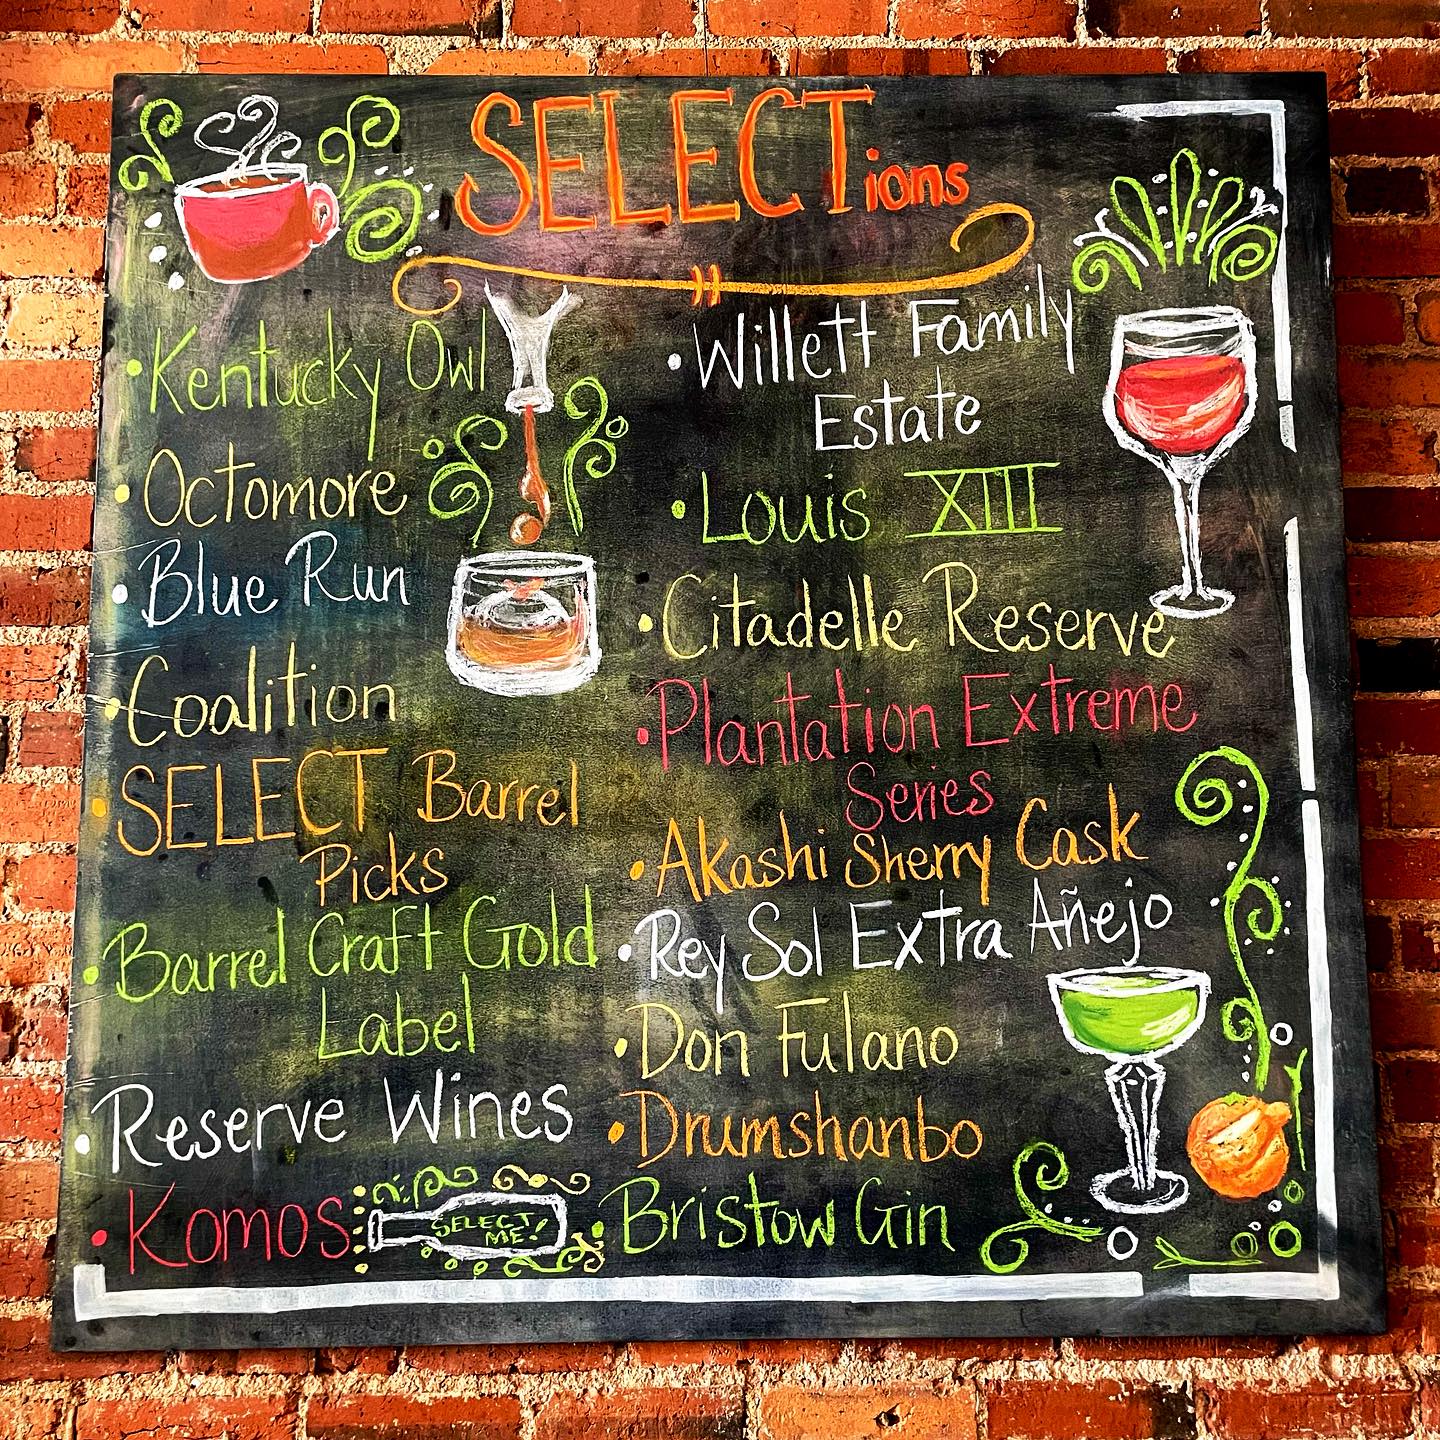 SELECTions
• Kentucky Owl
• Octomore
• Blue Run
• Coalition
• SELECT Barrel
Picks
• Barrel Craft Gold
Label
• Reserve Wines
• Komos
SELECT
ME!
• Willett Family
Estate
• Louis XIII
• Citadelle Reserve
• Plantation Extreme
Series
• Akashi Sherry Cask
• Rey Sol Extra Añejo
• Don Fulano
• Drumshanbo
• Bristow Gin